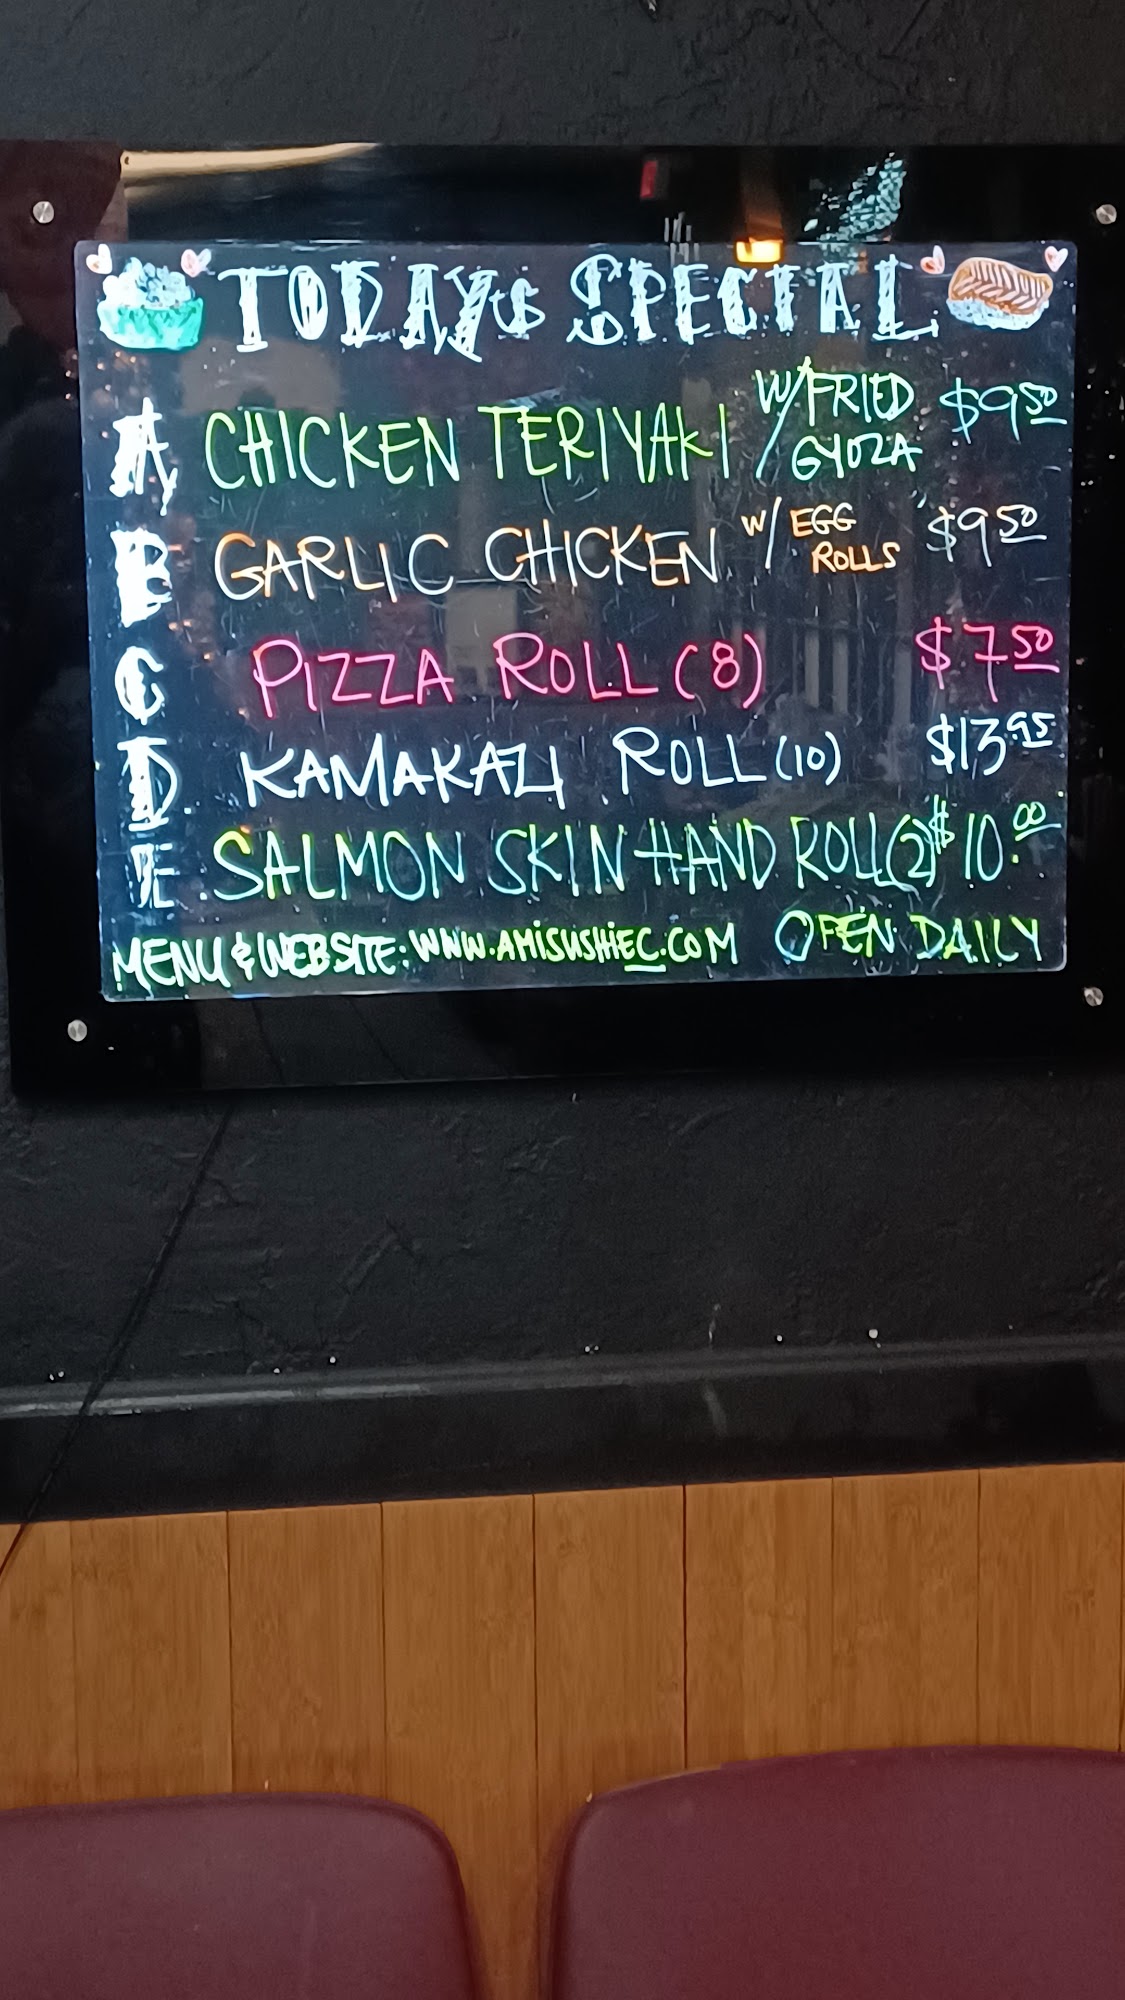 TODAY'S SPECIAL
A. CHICKEN TERIYAKI W/ FRIED GYOZA $9.50
B. GARLIC CHICKEN W/ EGG ROLLS $9.50
C PIZZA ROLL (8) $7.50
D. KAMAKAZI ROLL (10) $13.95
E. SALMON SKIN HAND ROLL (2) $10.00
MENU & WEBSITE: WWW.AMISUSHIEC.COM OPEN DAILY